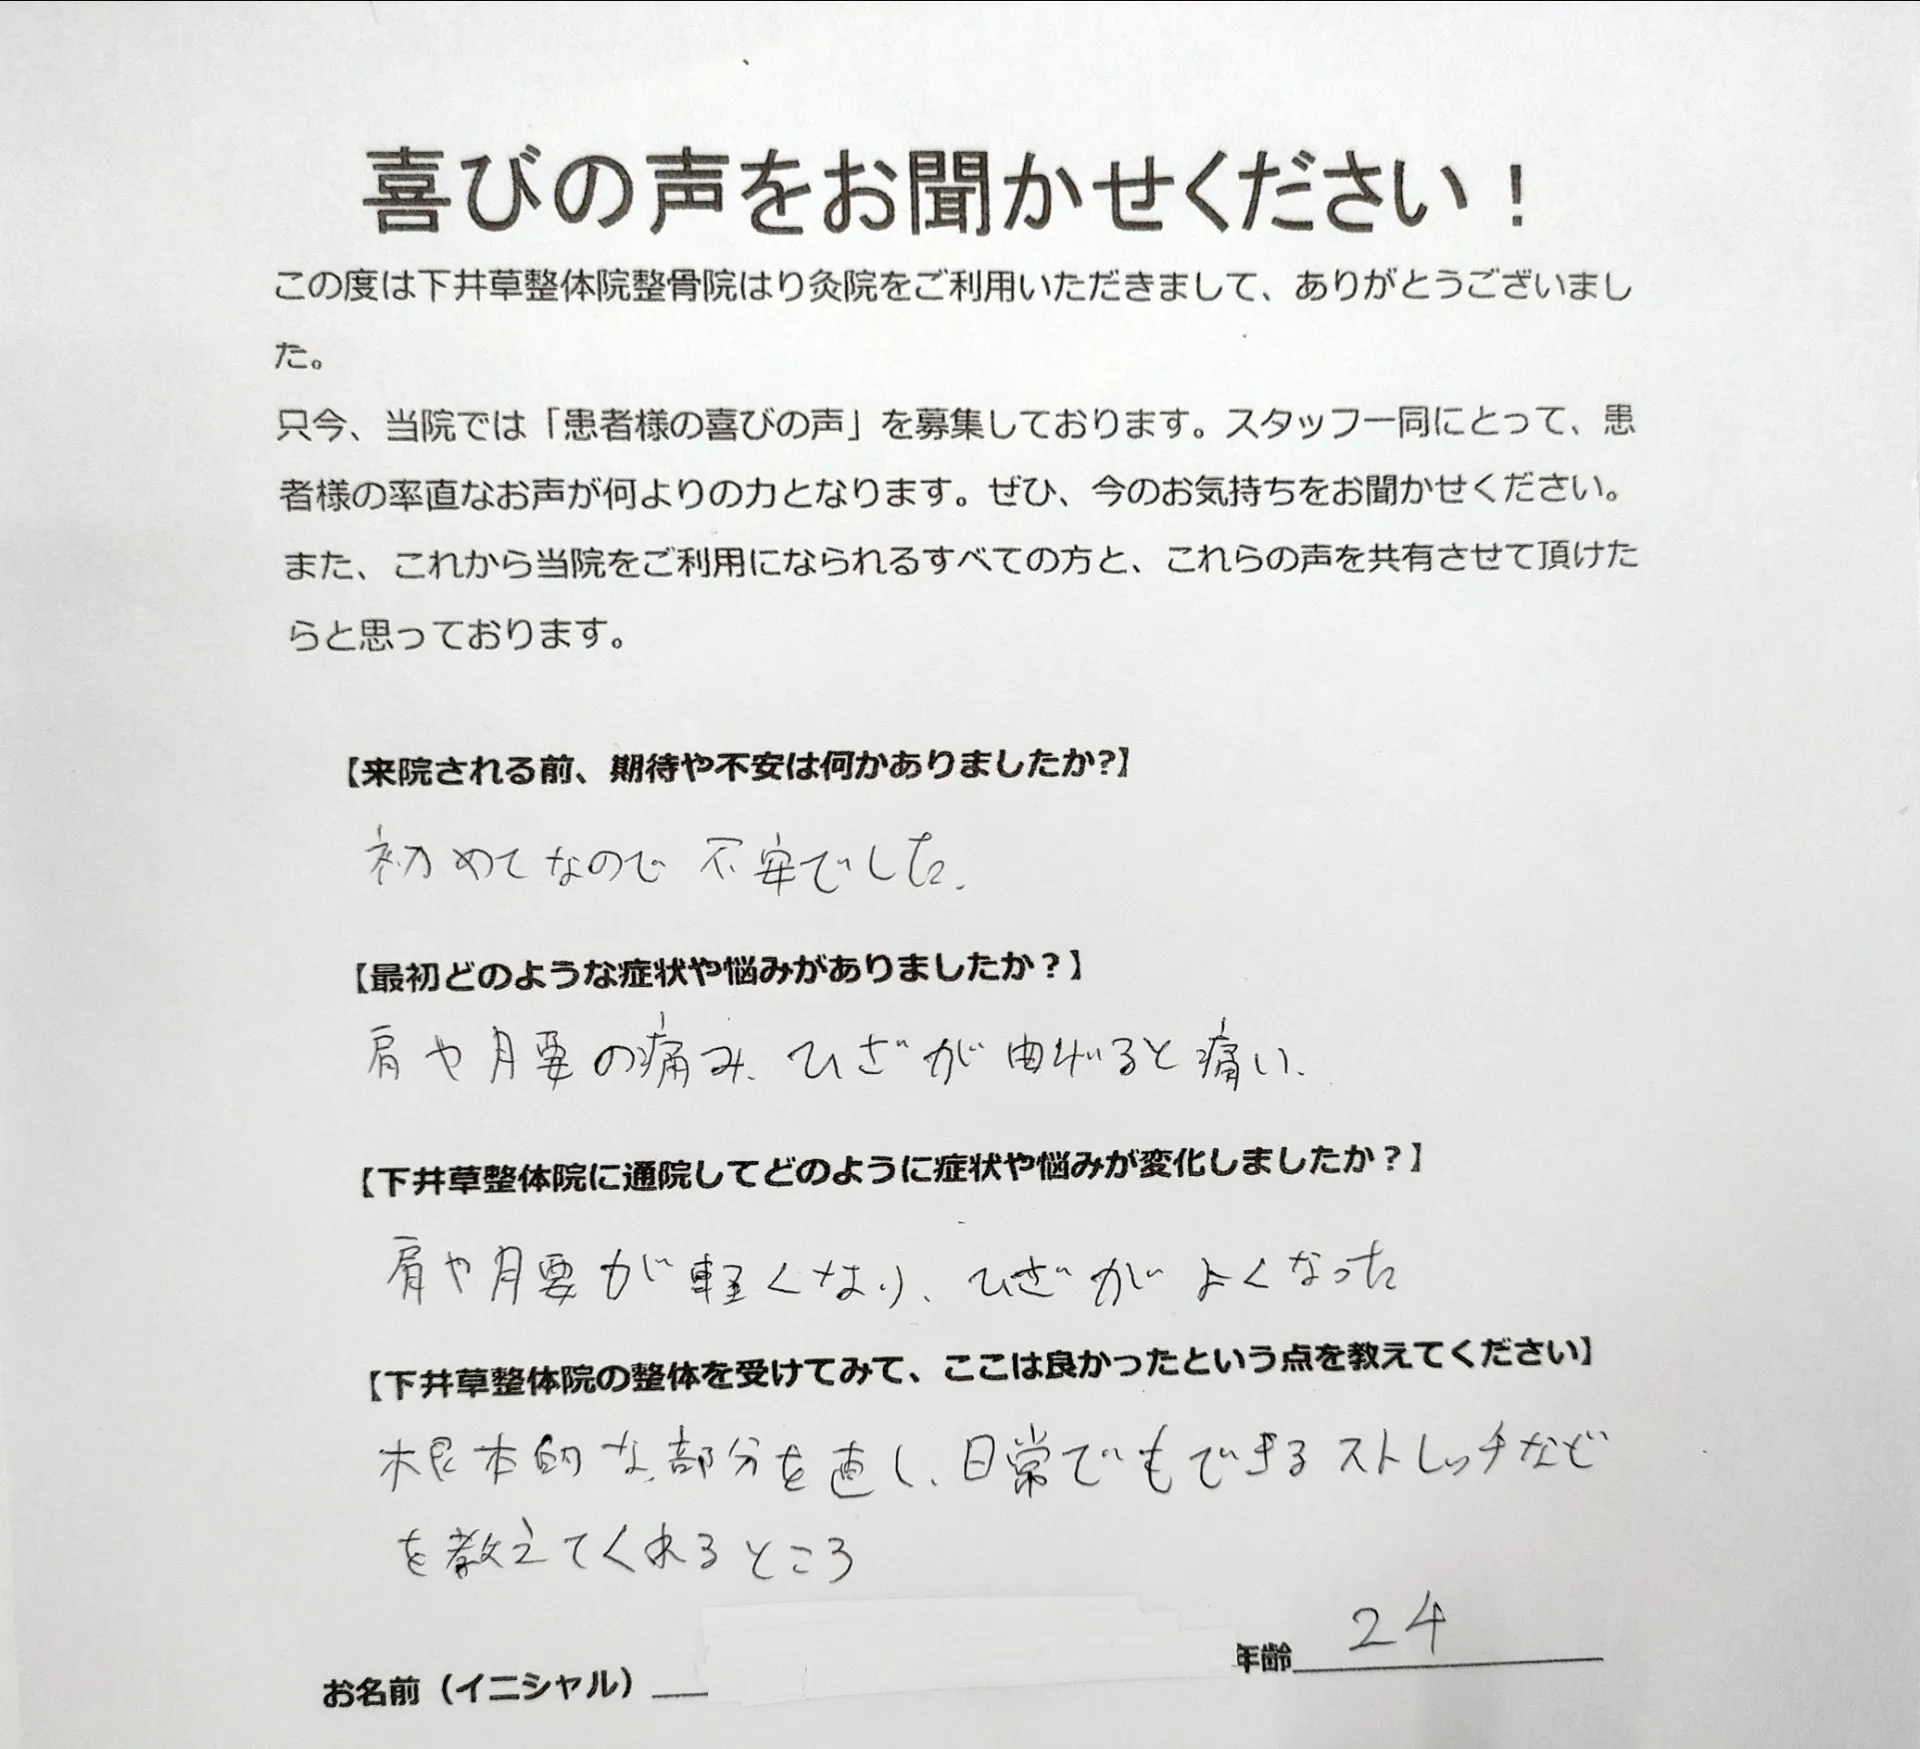 喜びの声をお聞かせください！
この度は下井草整体院整骨院はり灸院をご利用いただきまして、ありがとうございまし
た。
只今、当院では「患者様の喜びの声」を募集しております。スタッフ一同にとって、患
者様の率直なお声が何よりの力となります。ぜひ、今のお気持ちをお聞かせください。
また、これから当院をご利用になられるすべての方と、これらの声を共有させて頂けた
らと思っております。
【来院される前、期待や不安は何かありましたか?】
初めてなので不安でした。
【最初どのような症状や悩みがありましたか？】
肩や腰の痛み、ひざが曲げると痛い。
【下井草整体院に通院してどのように症状や悩みが変化しましたか？】
肩や腰が軽くなり、ひざがよくなった
【下井草整体院の整体を受けてみて、ここは良かったという点を教えてください】
根本的な部分を直し、日常でもできるストレッチなど
を教えてくれるところ
お名前（イニシャル） 年齢 24